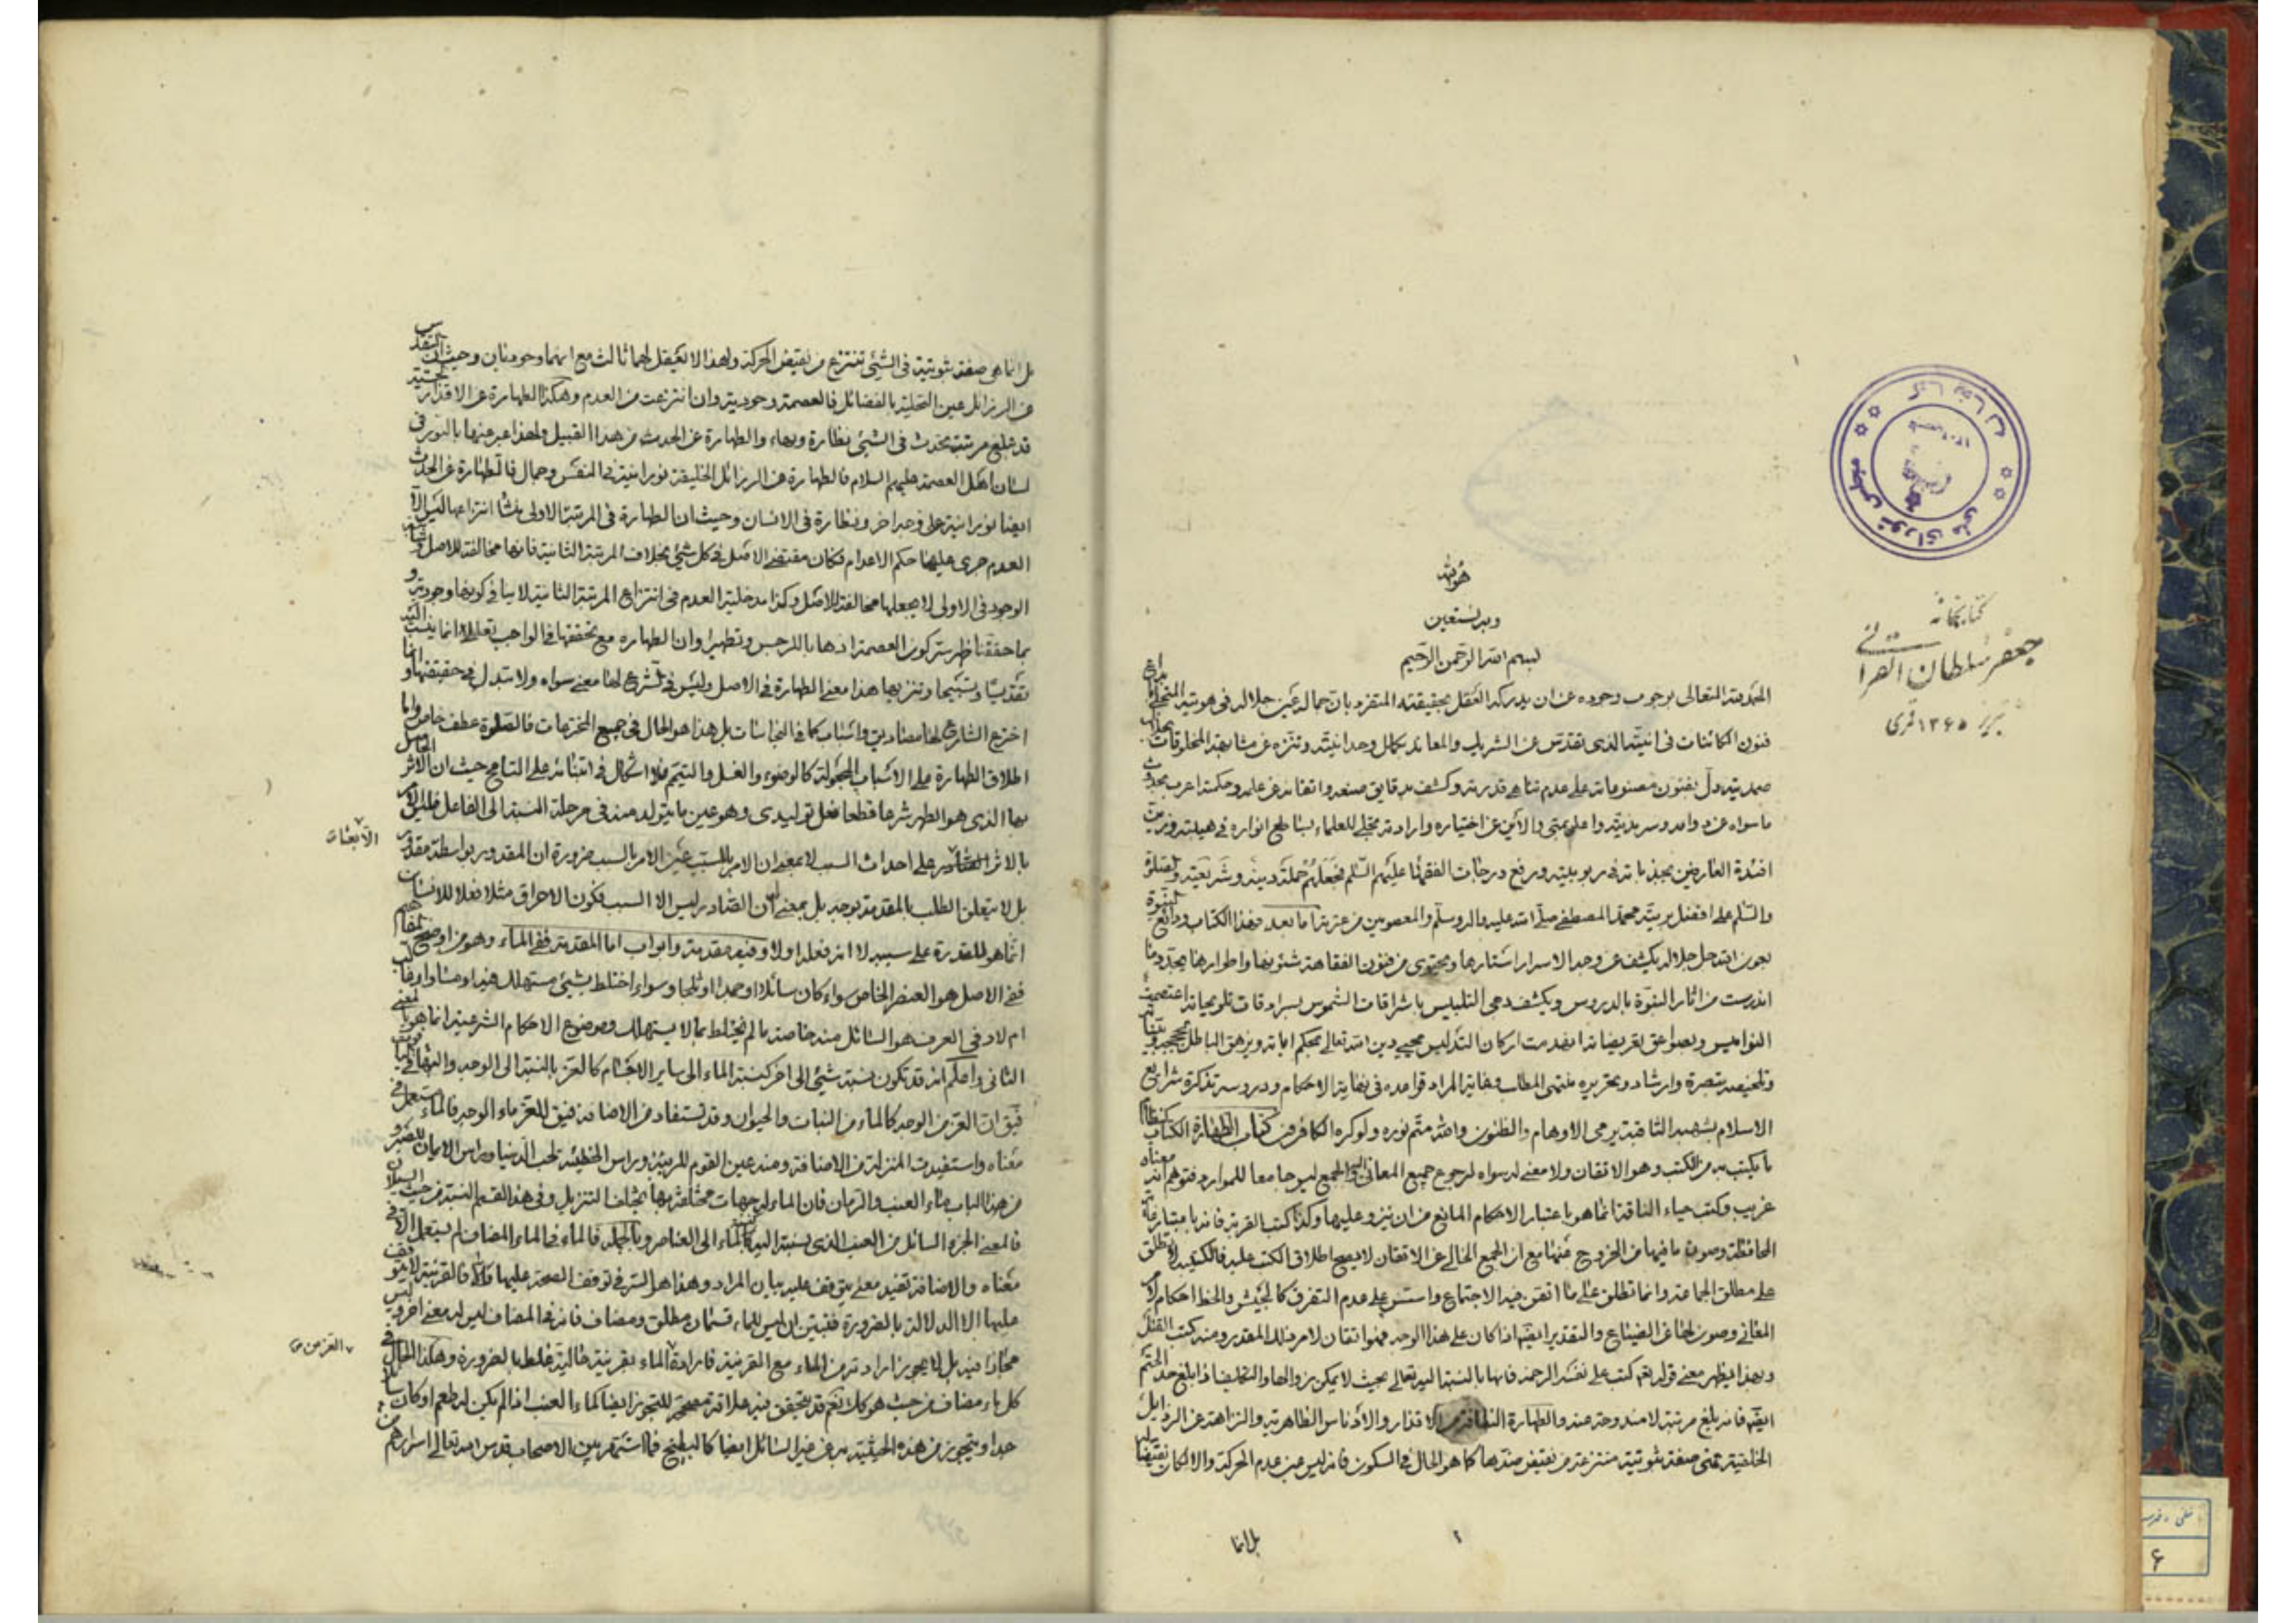 هو الله
وبه نستعين
بسم الله الرحمن الرحيم
الحمد لله المتعالى بوجوب وجوده عن ان يدركه العقل بحقيقته المتفرد بان جماله عين جلاله فى هويته المتجلى
فنون الكائنات فى انيته الذى تقدس عن الشريك والمعاند بكمال وحدانيته وتنزه عن مشابهة المخلوقات
صمديته دل بفنون مصنوعاته على عدم تناهى قدرته وكشف بدقايق صنعه واتقانه عن علمه وحكمته اعرب بحدوث
ما سواه عن
اختياره وارادته تجلى للعلماء بساطع انواره فى هيبته
افئدة العارفين بجذباته فى ربوبيته ورفع درجات الفقهاء عليهم السلم فجعلهم حملة دينه وشريعته والصلوة
والسلم على افضل بريته محمد المصطفى صلى الله عليه واله وسلم والمعصومين من عترته اما بعد فهذا الكتاب ودائع النبوة
بعون الله جل جلاله يكشف عن وجه الاسرار استارها ويحتوى من فنون الفقاهة شئونها واطوارها يجدد ما
اندرست من اثار النبوة بالدروس ويكشف دجى التلبيس باشراقات الشموس
النواميس وبصواعق تقريضاته انهدمت اركان التدليس يحيى دين الله تعالى بمحكم اياته ويزهق الباطل بحججه
وتلخيصه تبصرة وارشاد وبتحريره منتهى المطالب وغاية المراد قواعده فى نهاية الاحكام ودروسه تذكرة شرايع
الاسلام بشهبه الثاقبة يرمى الاوهام والظنون والله متم نوره ولو كره الكافرون كتاب الطهارة الكتاب
ما يكتب به من الكتب وهو الاتقان ولا معنى له سواه لرجوع جميع المعانى اليه والجمع ليس جامعا للموارد فتوهم انه معناه
غريب وكتب حياء الناقة انما هو باعتبار الاحكام المانع من ان ينزو عليها وكذا كتب القربة فانه باعتبار
المحافظة وصون ما فيها من الخروج عنها مع ان الجمع الخالى عن الاتقان لا يصح اطلاق الكتب عليه فالكتيبة لا تطلق
على مطلق الجماعة وانما تطلق على ما اتقن فيه الاجتماع واسس على عدم التفرق كالجيش والخط احكام لامر
المعانى وصون لها عن الضياع والتقدير ايضا اذا كان على هذا الوجه فهو اتقان لامر ذلك المقدر ومنه كتب القتل
وبهذا يظهر معنى قوله تعالى كتب على نفسه الرحمة فانها بالنسبة اليه تعالى بحيث لا يمكن زوالها والتكليف اذا بلغ حد الحتم
ايضا فانه بلغ مرتبة لا مندوحة عنه والطهارة النظافة من الاقذار والادناس الظاهرية والنزاهة عن الرذايل
الخلقية فهى صفة ثبوتية منتزعة من نقيض ضدها كما هو الحال فى السكون فانه ليس عين عدم الحركة والا لكان نقيضا
بل انما
كتابخانه
جعفر سلطان القرائى
تبريز ١٣٦٥ قمرى
مجلس شوراى ملى
بل انما هى صفة ثبوتية فى الشئ تنتزع من نقيض الحركة ولهذا لا يعقل لهما ثالث مع انهما وجوديان وحيث ان التقدس
عن الرزائل عين التحلية بالفضائل فالعصمة وجودية وان انتزعت من العدم وهكذا الطهارة عن الاقذار
قد تبلغ مرتبة تحدث فى الشئ نظارة وبهاء والطهارة عن الحدث من هذا القبيل ولهذا عبر عنها بالنور فى
لسان اهل العصمة عليهم السلام فالطهارة عن الرزائل الخلقية نورانية فى النفس وجمال فالطهارة عن الحدث
ايضا نورانية على وجه اخر ونظارة فى الانسان وحيث ان الطهارة فى المرتبة الاولى منشأ انتزاعها ليس الا
العدم جرى عليها حكم الاعدام فكان مقتضى الاصل فى كل شئ بخلاف المرتبة الثانية فانها مخالفة للاصل
الوجود فى الاولى لا يجعلها مخالفة للاصل وكذا مدخلية العدم فى انتزاع المرتبة الثانية لا ينافى كونها وجودية و
بما حققنا ظهر سر كون العصمة اذهابا للرجس وتطهيرا وان الطهاره مع تحققها فى الواجب تعالى
تقديسا وتسبيحا وتنزيها هذا معنى الطهارة فى الاصل وليس فى الشرع لها معنى سواه ولا تبدل فى حقيقتها وانما
اخترع الشارع لها مصاديق واسباب كما فى النجاسات بل هذا هو الحال فى جميع المخترعات فالصلوة عطف خاص واما
اطلاق الطهارة على الاسباب المجعولة كالوضوء والغسل والتيمم فلا اشكال فى ابتنائه على التسامح حيث ان الاثر الحاصل
بها الذى هو الطهر شرعا قطعا فعل توليدى وهو عين ما يتولد منه فى مرحلة النسبة الى الفاعل
بالاثر
على احداث السبب لا بمعنى ان الامر بالمسبب عين الامر بالسبب ضرورة ان المقدور بواسطة مقدور
بل لا يتعلق الطلب بالمقدمة بوجه بل بمعنى ان الصادر ليس الا السبب فكون الاحراق مثلا فعلا للانسان
انما هو للقدرة على سببه لا انه فعله اولا وفيه مقدمة وابواب اما المقدمة ففى الماء وهو من اوضح المفاهيم
ففى الاصل هو العنصر الخاص سواء كان سائلا او جمدا او ثلجا وسواء اختلط بشئ مستهلك فيه او مساو او غالب
ام لا وفى العرف هو السائل منه خاصة ما لم يختلط بما لا يستهلك وموضوع الاحكام الشرعية انما هو بالمعنى
الثانى واعلم انه قد تكون نسبة شئ الى اخر كنسبة الماء الى ساير الاجسام كالعز بالنسبة الى الوجه
فيق ان العز من الوجه كالماء من النبات والحيوان وقد تستفاد من الاضافة فيق للعز ماء الوجه فالماء مستعمل فى
معناه واستفيدت المنزلة من الاضافة ومنه عين القوم للربيئة وراس الخطيئة لحب الدنيا وراس الايمان للصبر و
من هذا الباب ماء العنب والرمان فان الماء له جهات مختلفة بها يختلف التنزيل وفى هذا القسم النسبة من حيث السيلان
فالمعنى الجزء السائل من العنب الذى نسبته اليه كنسبة الماء الى العناصر وبالجملة فالماء فى الماء المضاف لم يستعمل الا فى
معناه والاضافة تفيد معنى يتوقف عليه بيان المراد وهذا هو السر فى توقف الصحة عليها
عليها الا الدلالة بالضرورة فتبين ان ليس للماء قسمان مطلق ومضاف فانه فى المضاف ليس له معنى اخر و
مجازا فيه بل لا يجوز ارادته من الماء مع القرينة فارادة الماء بقرينة حالية غلط بالضرورة وهكذا الحال فى
كل ماء مضاف من حيث هو كك نعم قد يتحقق فيه علاقة مصححة للتجوز ايضا كماء العنب اذا لم يكن له طعم او كان
جدا ويتجوز من هذه الحيثية به عن غير السائل ايضا كالبطيخ فما اشتهر بين الاصحاب قدس الله تعالى اسرارهم